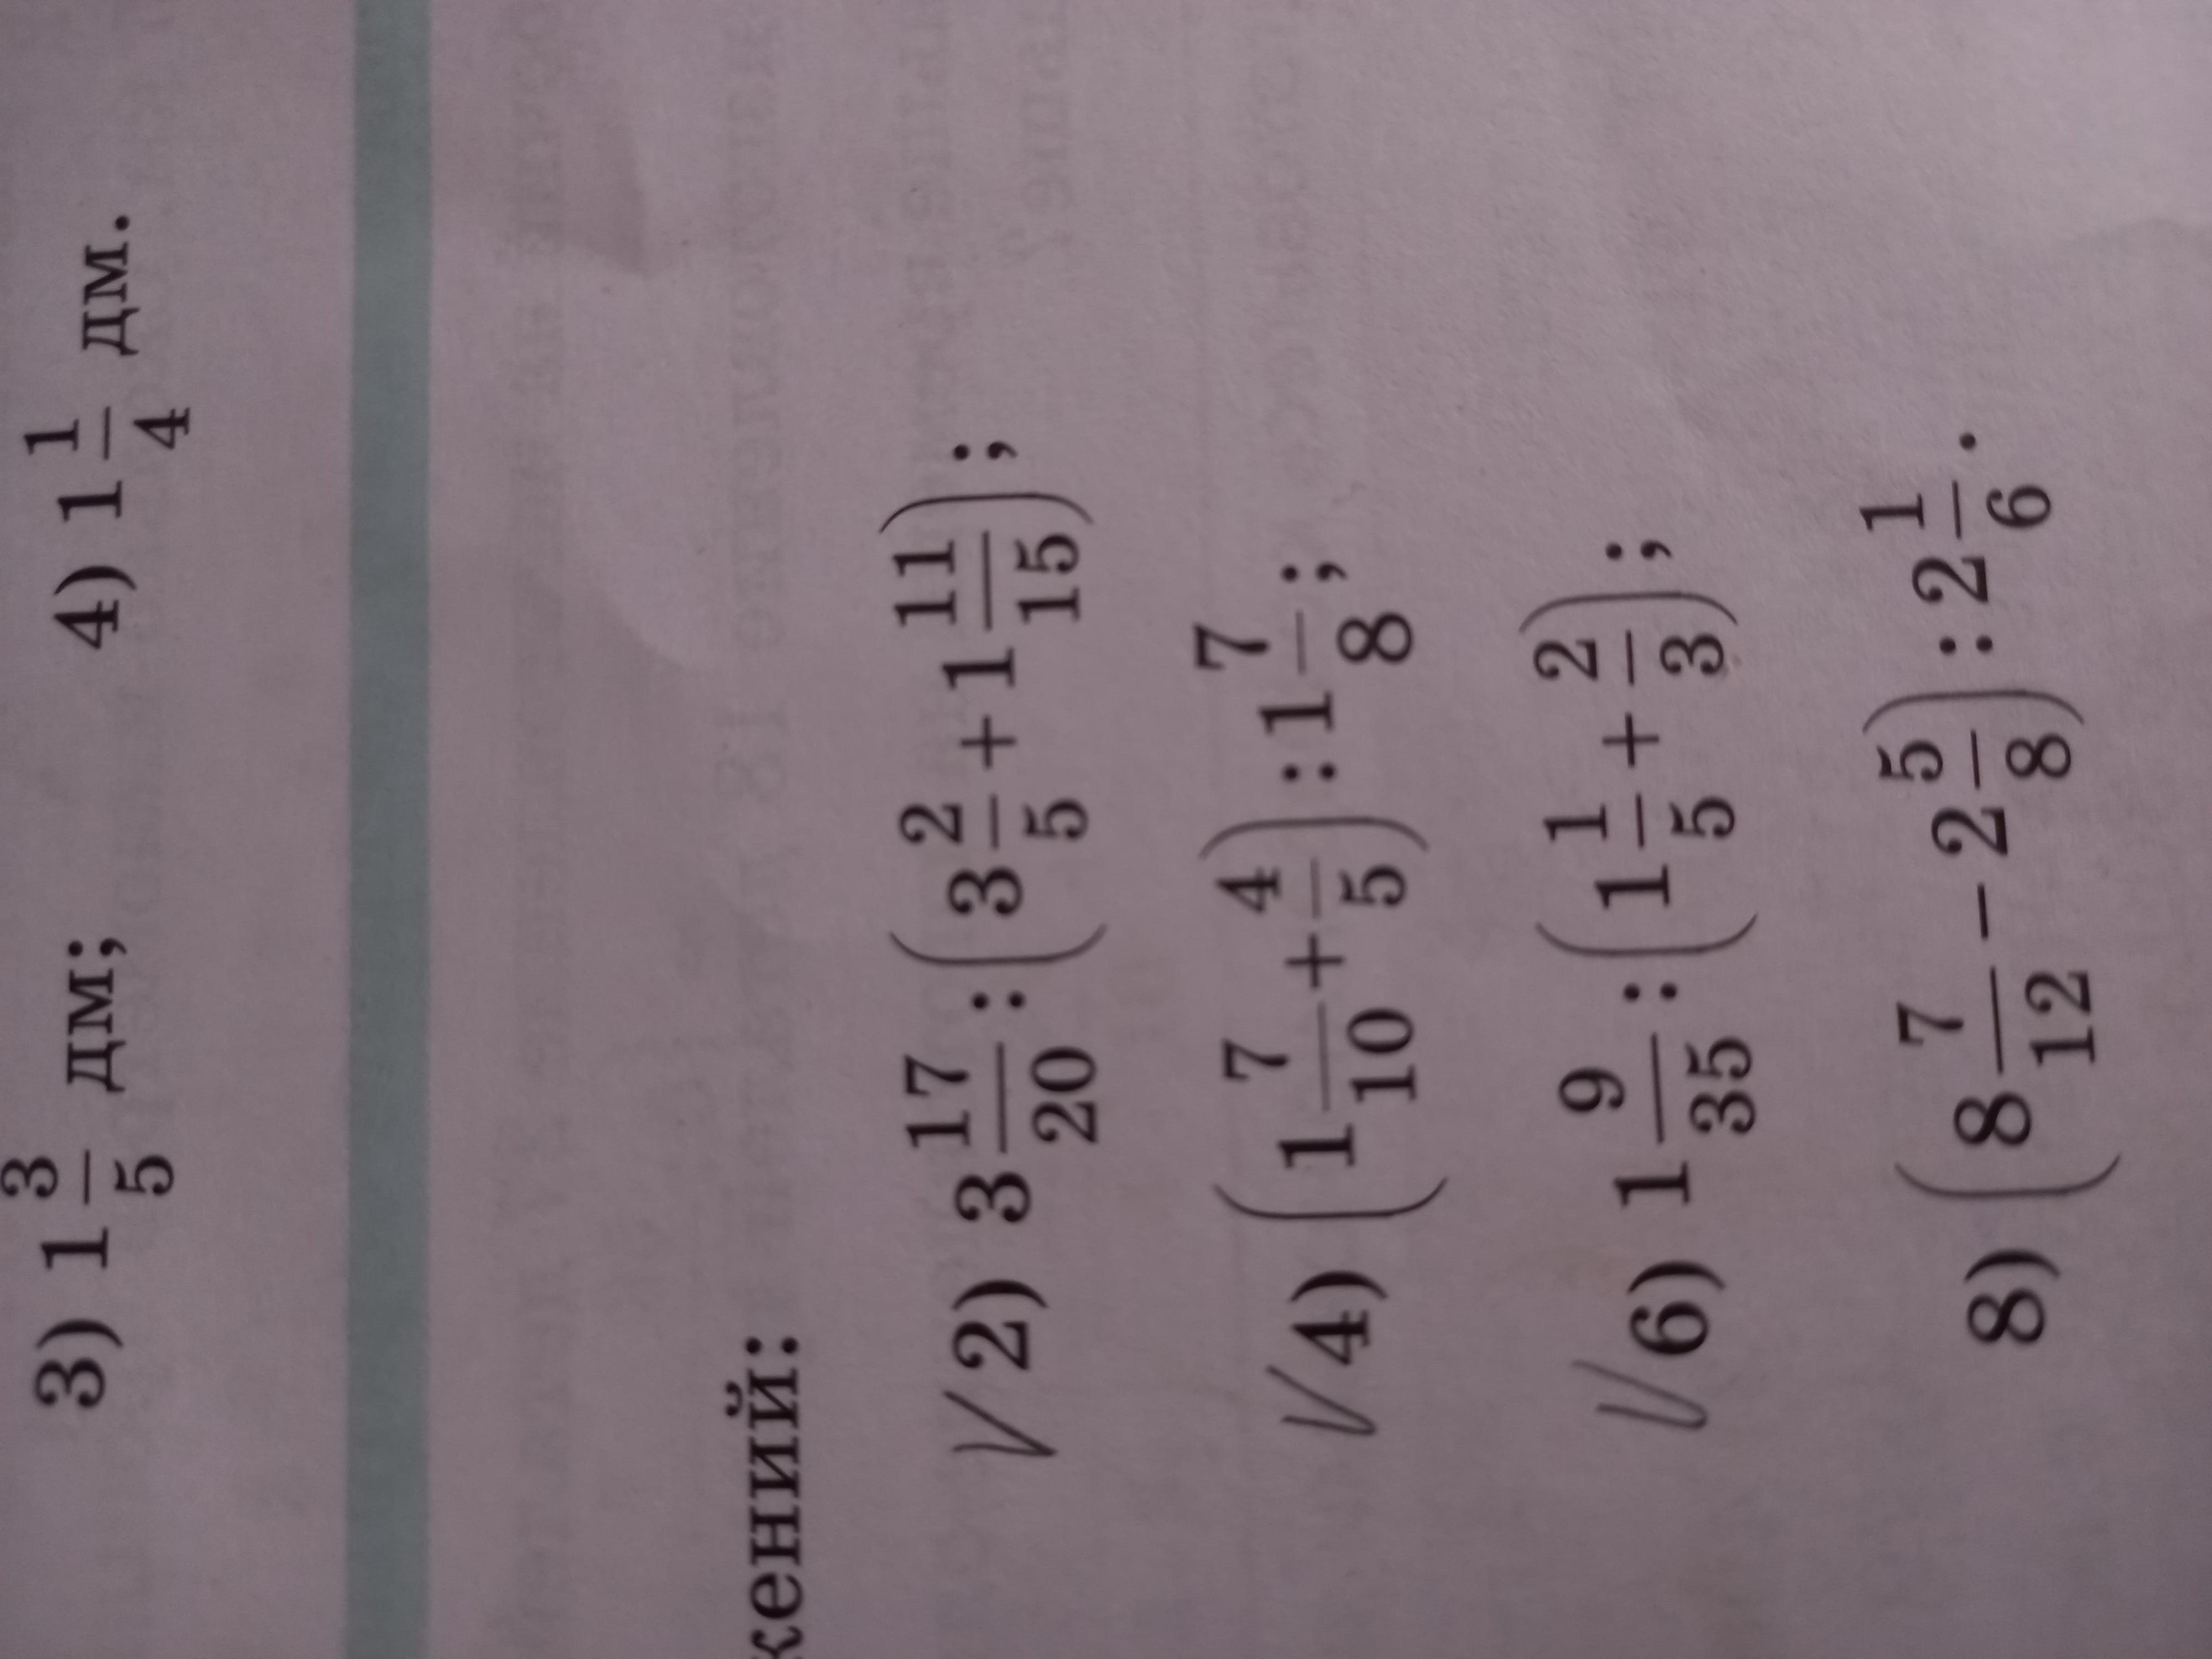 3) 1 3/5 дм; 4) 1 1/4 дм.
жений:
2) 3 17/20 : (3 2/5 + 1 11/15);
4) (1 7/10 + 4/5) : 1 7/8;
6) 1 9/35 : (1 1/5 + 2/3);
8) (8 7/12 − 2 5/8) : 2 1/6.